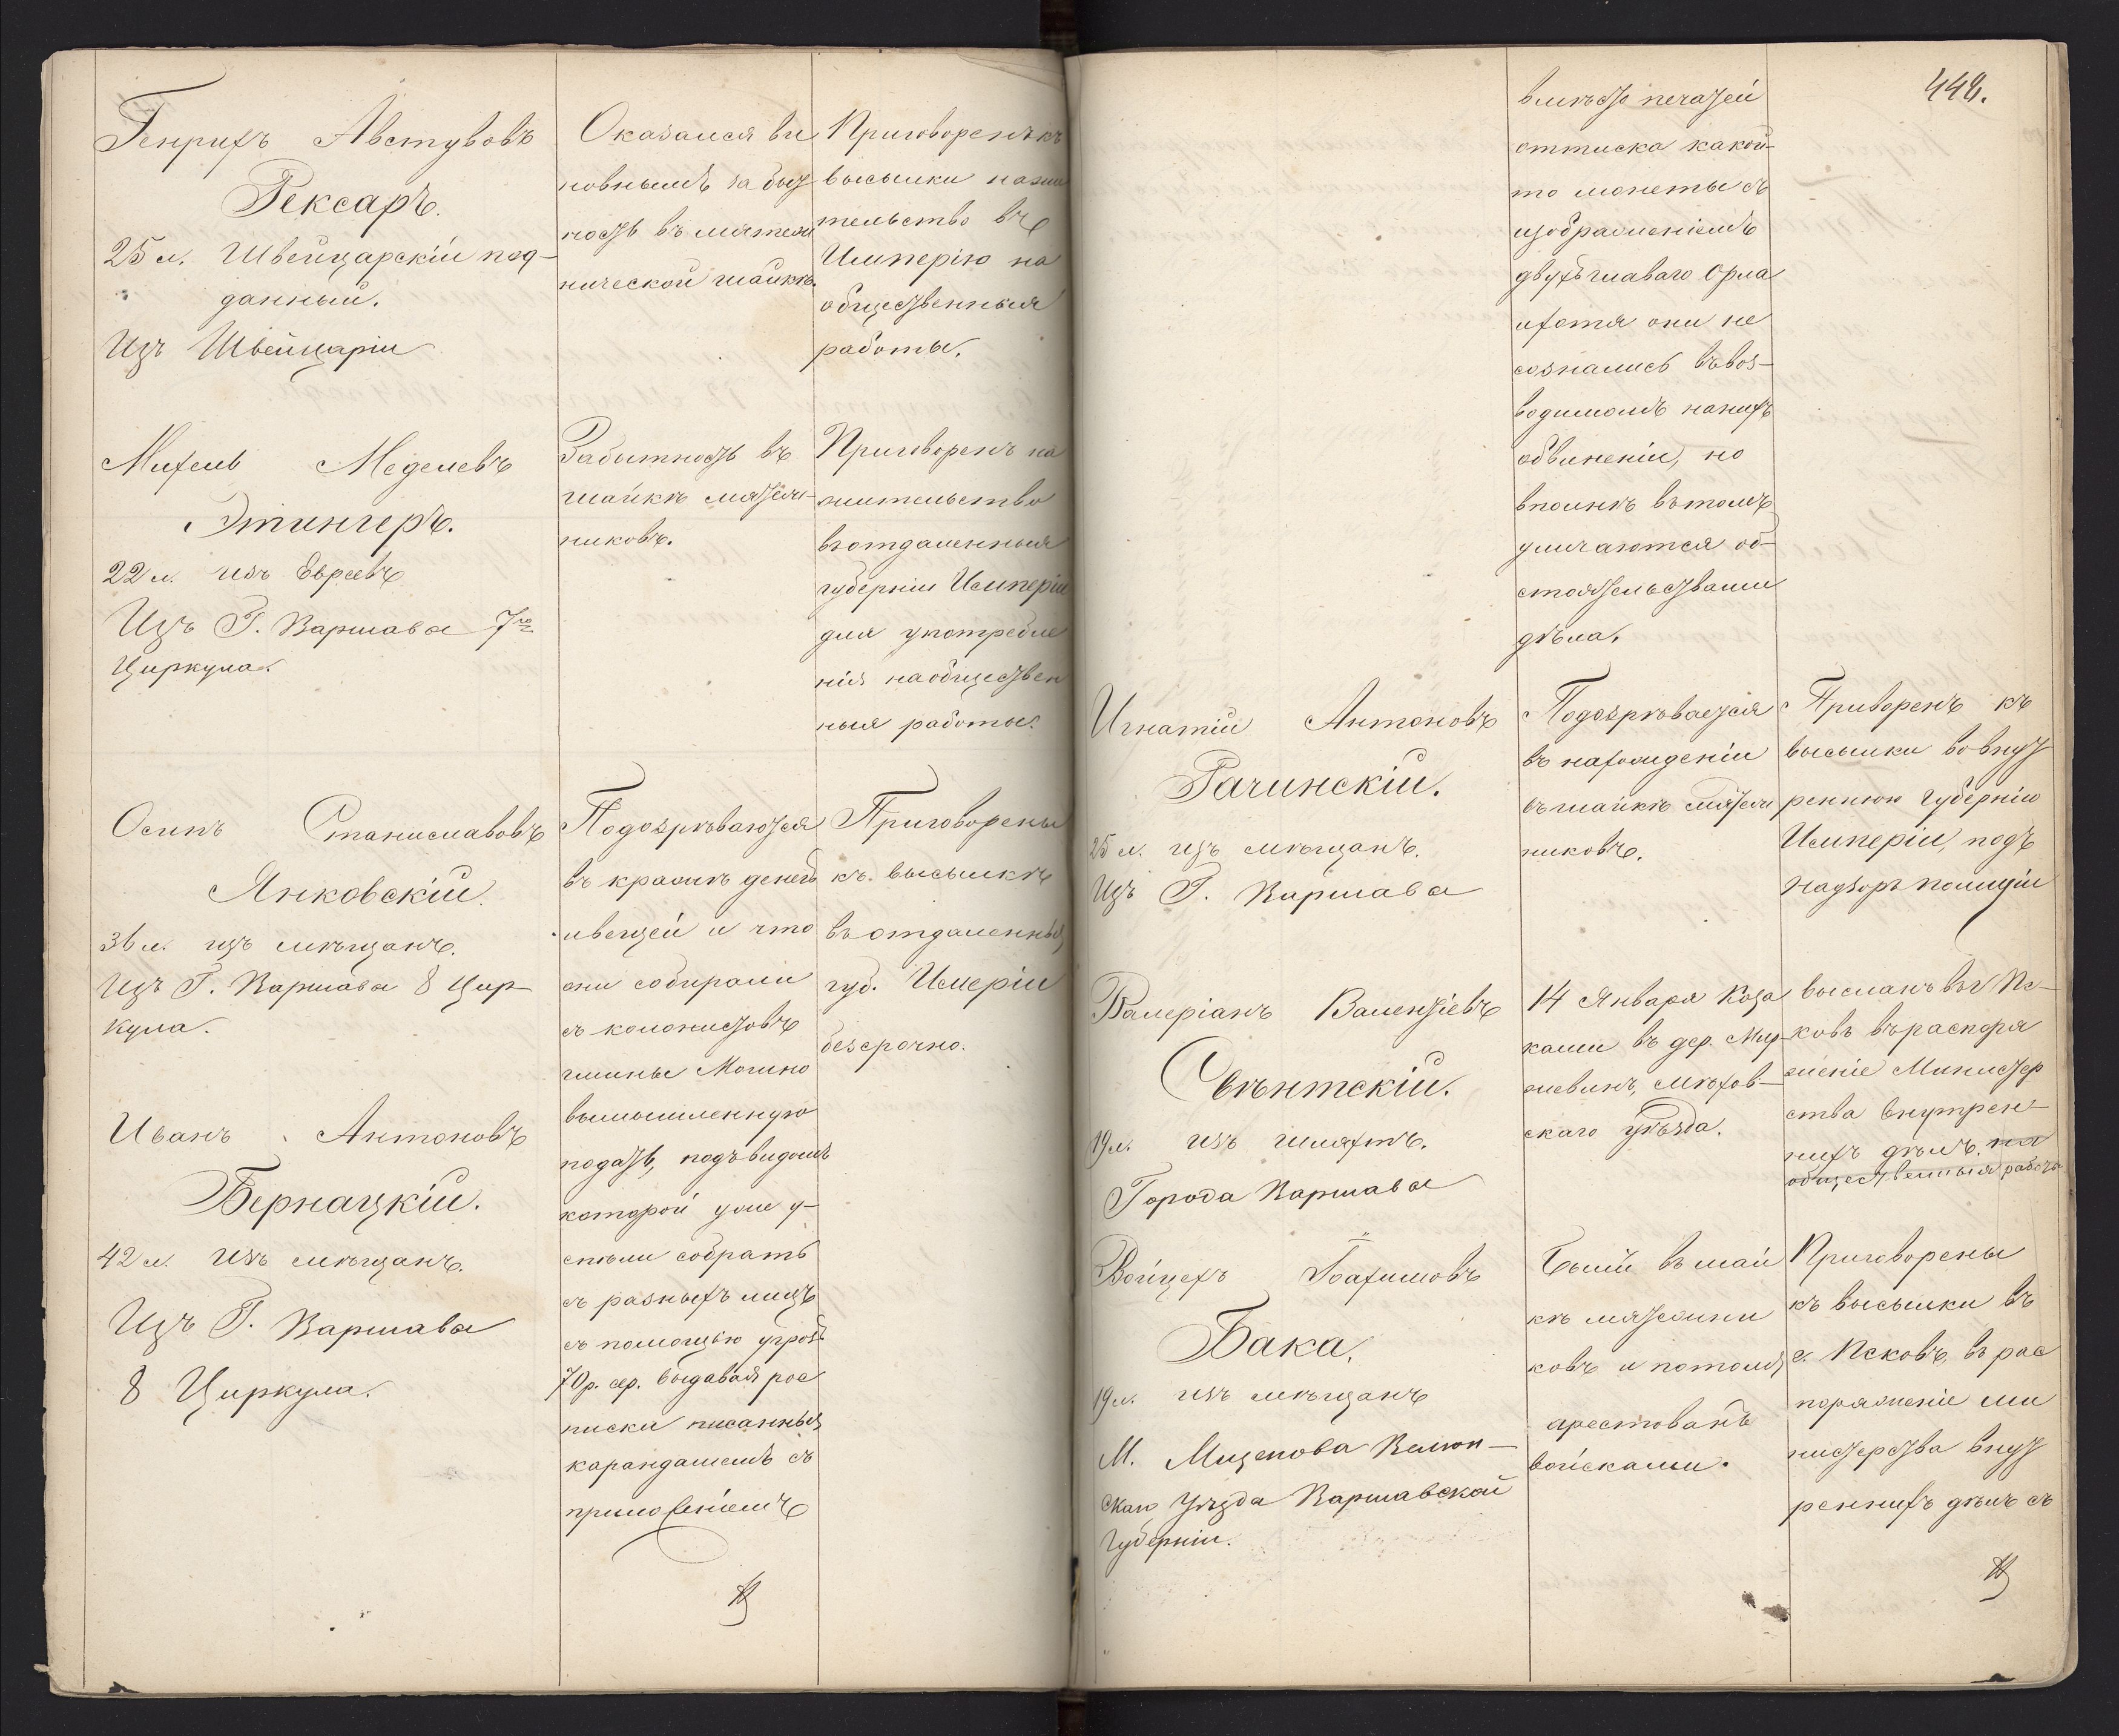 Генрихъ Августовъ
Рексаръ.
25 л. Швейцарскій под-
данный.
Изъ Швейцаріи
Оказался ви
новнымъ за быт
ность въ мятеж
нической шайкѣ.
Приговоренъ къ
высылки на жи
тельство въ
Имперію на
общественныя
работы.
Михель Меделевъ
Этингеръ.
22 л. изъ Евреевъ
Изъ Г. Варшавы 7го
Циркула.
За бытность въ
шайкѣ мятеж-
никовъ.
Приговоренъ на
жительство
въ отдаленныя
губерніи Имперіи
для употребле
нія на обществен
ныя работы.
Осипъ Станиславовъ
Янковскій.
36 л. изъ мѣщанъ.
Изъ Г. Варшавы 8 Цир-
кула.
Иванъ Антоновъ
Бернацкій.
42 л. изъ мѣщанъ.
Изъ Г. Варшавы
8 Циркула.
Подозрѣваются
въ кражѣ денегъ
и вещей и что
они собирали
съ колонистовъ
гмины Могино
вымышленную
подать, подъ видомъ
которой уже у-
спѣли собрать
съ разныхъ лицъ
съ помощью угрозъ
70 р. сер. выдавая рос
писки писанныя
карандашемъ съ
приложеніемъ
Приговорены
къ высылкѣ
въ отдаленныя
губ. Имперіи
безсрочно.
448.
вмѣсто печатей
оттиска какой-
то монеты съ
изображеніемъ
двухъ главаго Орла
и хотя они не
сознались въ воз-
водимомъ на нихъ
обвиненіи, но
вполнѣ въ томъ
уличаются об-
стоятельствами
дѣла.
Игнатій Антоновъ
Рачинскій.
25 л. изъ мѣщанъ.
Изъ Г. Варшавы
Подозрѣвается
въ нахожденіи
въ шайкѣ мятеж
никовъ.
Приворенъ къ
высылки во внут
реннюю губернію
Имперіи, подъ
надзоръ полиціи
Валеріанъ Валентіевъ
Свѣнтскій.
19 л. изъ шляхтъ.
Города Варшавы
14 Января Коза
ками въ дер. Мир-
жевинъ, Мѣхов-
скаго уѣзда.
высланъ въ г. Пс-
ковъ въ распоря
женіе Министер
ства внутрен-
нихъ дѣлъ. на
общественныя работы
Войцехъ Іоахимовъ
Бака.
19 л. изъ мѣщанъ
М. Мщенова Велюн-
скаго Уѣзда Варшавской
Губерніи.
Былъ въ шай
кѣ мятежни
ковъ и потомъ
арестованъ
войсками.
Приговорены
къ высылки въ
г. Псковъ, въ рас
поряженіе ми
нистерства внут
реннихъ дѣлъ съ